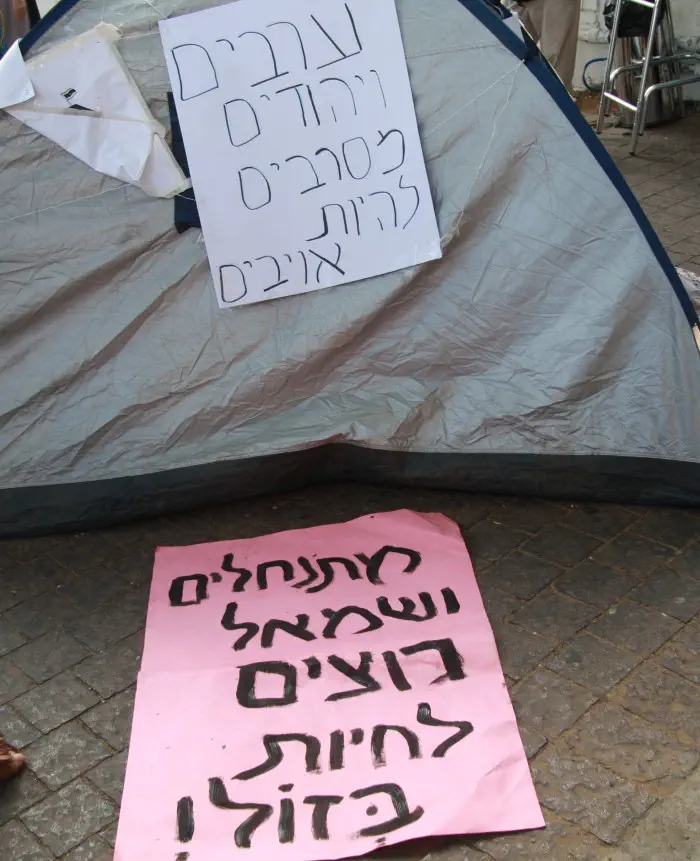 ערבים
ויהודים
מסרבים
להיות
אויבים
מתנחלים
ושמאל
רוצים
לחיות
בְּזוֹל!